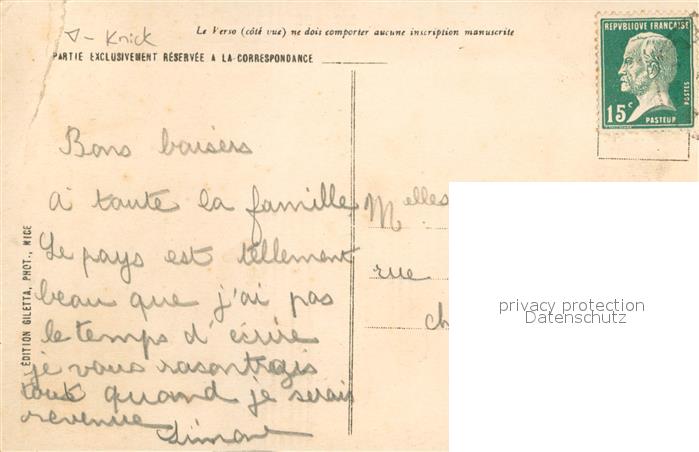 Knick
Le Verso (côté vue) ne dois comporter aucune inscription manuscrite
PARTIE EXCLUSIVEMENT RÉSERVÉE A LA CORRESPONDANCE
REPUBLIQUE FRANÇAISE
15c
POSTES
PASTEUR
Bons baisers
à toute la famille
Le pays est tellement
beau que j'ai pas
le temps d'écrire
je vous rasontrais
tout quand je serais
revenue
Simone
Melles
rue
ch
ÉDITION GILETTA, PHOT., NICE
privacy protection
Datenschutz